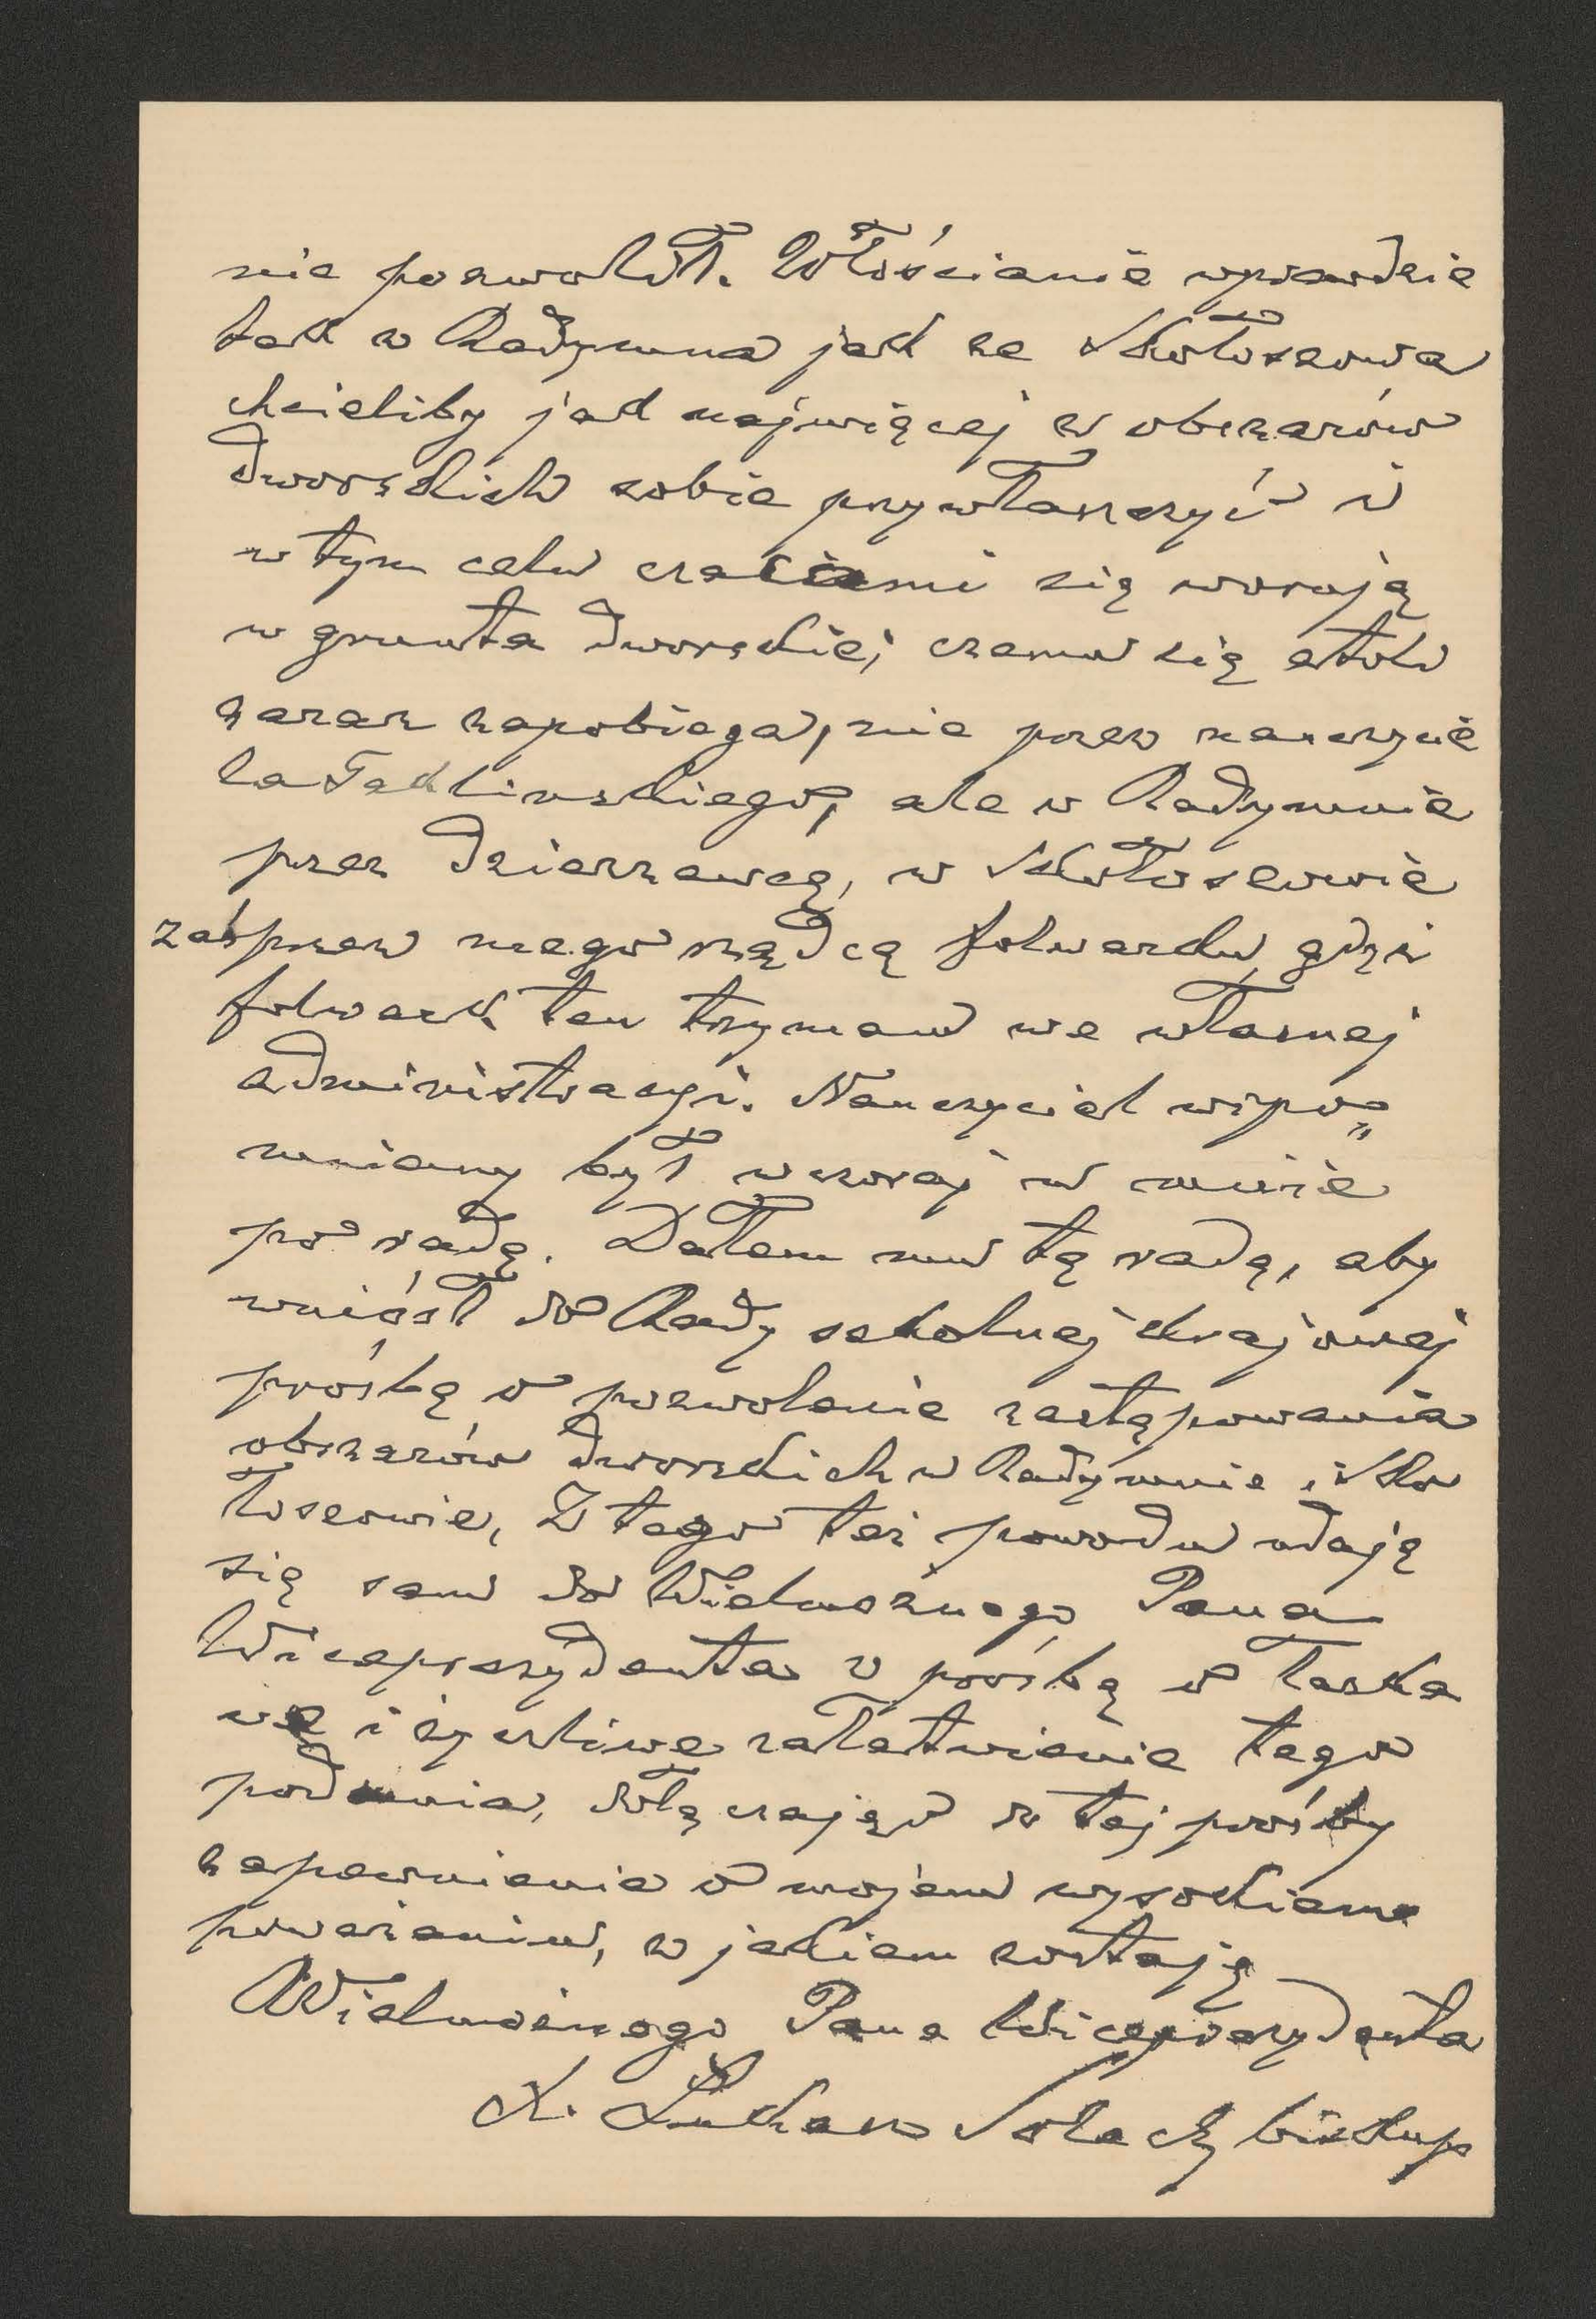 nie pozwolił. Włościanie wprawdzie
tak z Radymna jak ze Skołoszowa
chcieliby jak najwięcej z obszarów
dworskich sobie przywłaszczyć i
w tym celu czasami się worują
w grunta dworskie, czemu się atoli
zaraz zapobiega, nie przez nauczycie
la Taklińskiego, ale w Radymnie
przez dzierżawcę, w Skołoszowie
zaś przez mego rządcę folwarku, gdyż
folwark ten trzymam we własnej
administracyi. Nauczyciel wspo=
mniany był wczoraj u mnie
po radę. Dałem mu tę radę, aby
wniósł do Rady szkolnej krajowej
prośbę o pozwolenie zastępowania
obszarów dworskich w Radymnie i Sko
łoszowie, Z tego też powodu udaję
się sam do Wielmożnego Pana
Wiceprezydenta z prośbą o łaska
we i życzliwe załatwienie tego
podania, dołączając do tej prośby
zapewnienie o mojem wysokiem
poważaniu, z jakiem zostaję
Wielmożnego Pana Wiceprezydenta
X. Łukasz Solecki biskup